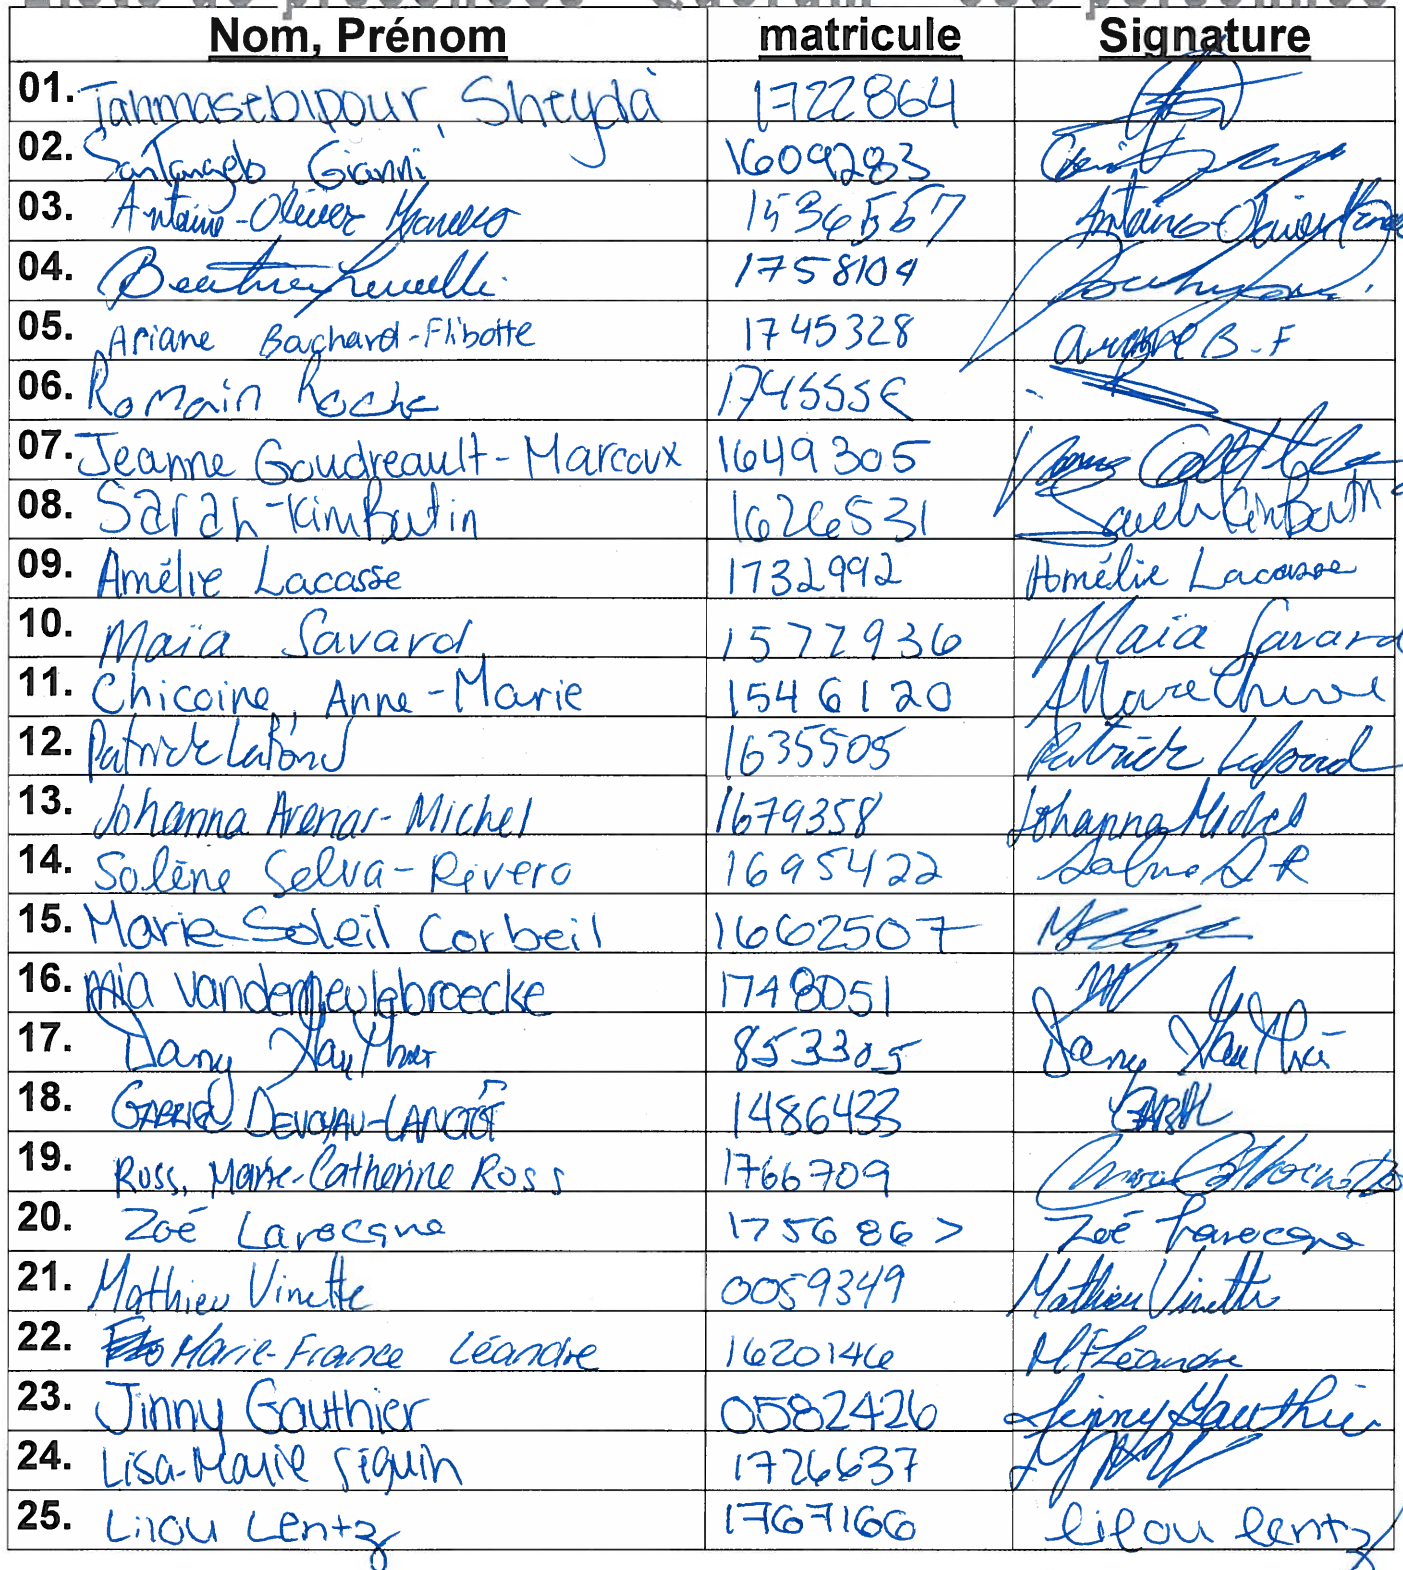 Liste de présences - Quorum
Nom, Prénom matricule Signature
01. Tahmasebipour, Sheyda 1722864
02. Santangelo, Gianni 1609283
03. Antoine-Olivier 1536557 Antoine-Olivier
04. 1758104
05. Ariane Bachard-Flibotte 1745328 Ariane B.-F
06. Romain Roche 174555
07. Jeanne Goudreault-Marcoux 1649305
08. Sarah-Kim Butin 1626531 Sarah Kim Butin
09. Amélie Lacasse 1732992 Amélie Lacasse
10. Maïa Savard 1577936 Maïa Savard
11. Chicoine, Anne-Marie 1546120
12. Patrick Lafond 1635505 Patrick Lafond
13. Johanna Arenas-Michel 1679358 Johanna Michel
14. Solène Selva-Rivero 1695422 Solène S-R
15. Marie-Soleil Corbeil 16602507
16. Mia Vandermeulebroecke 1748051
17. Dany Gauthier 853305 Dany Gauthier
18. GABRIEL DEVOYAU-LANCTÔT 1486433
19. Ross, Marie-Catherine Ross 1766709 Marie Catherine Ross
20. Zoé Larocque 1756867 Zoé Larocque
21. Mathieu Vinette 0059349 Mathieu Vinette
22. Marie-France Léandre 1620146 M.F Léandre
23. Jinny Gauthier 0582426 Jinny Gauthier
24. Lisa-Marie Séguin 1726637
25. Lilou Lentz 1767166 Lilou Lentz